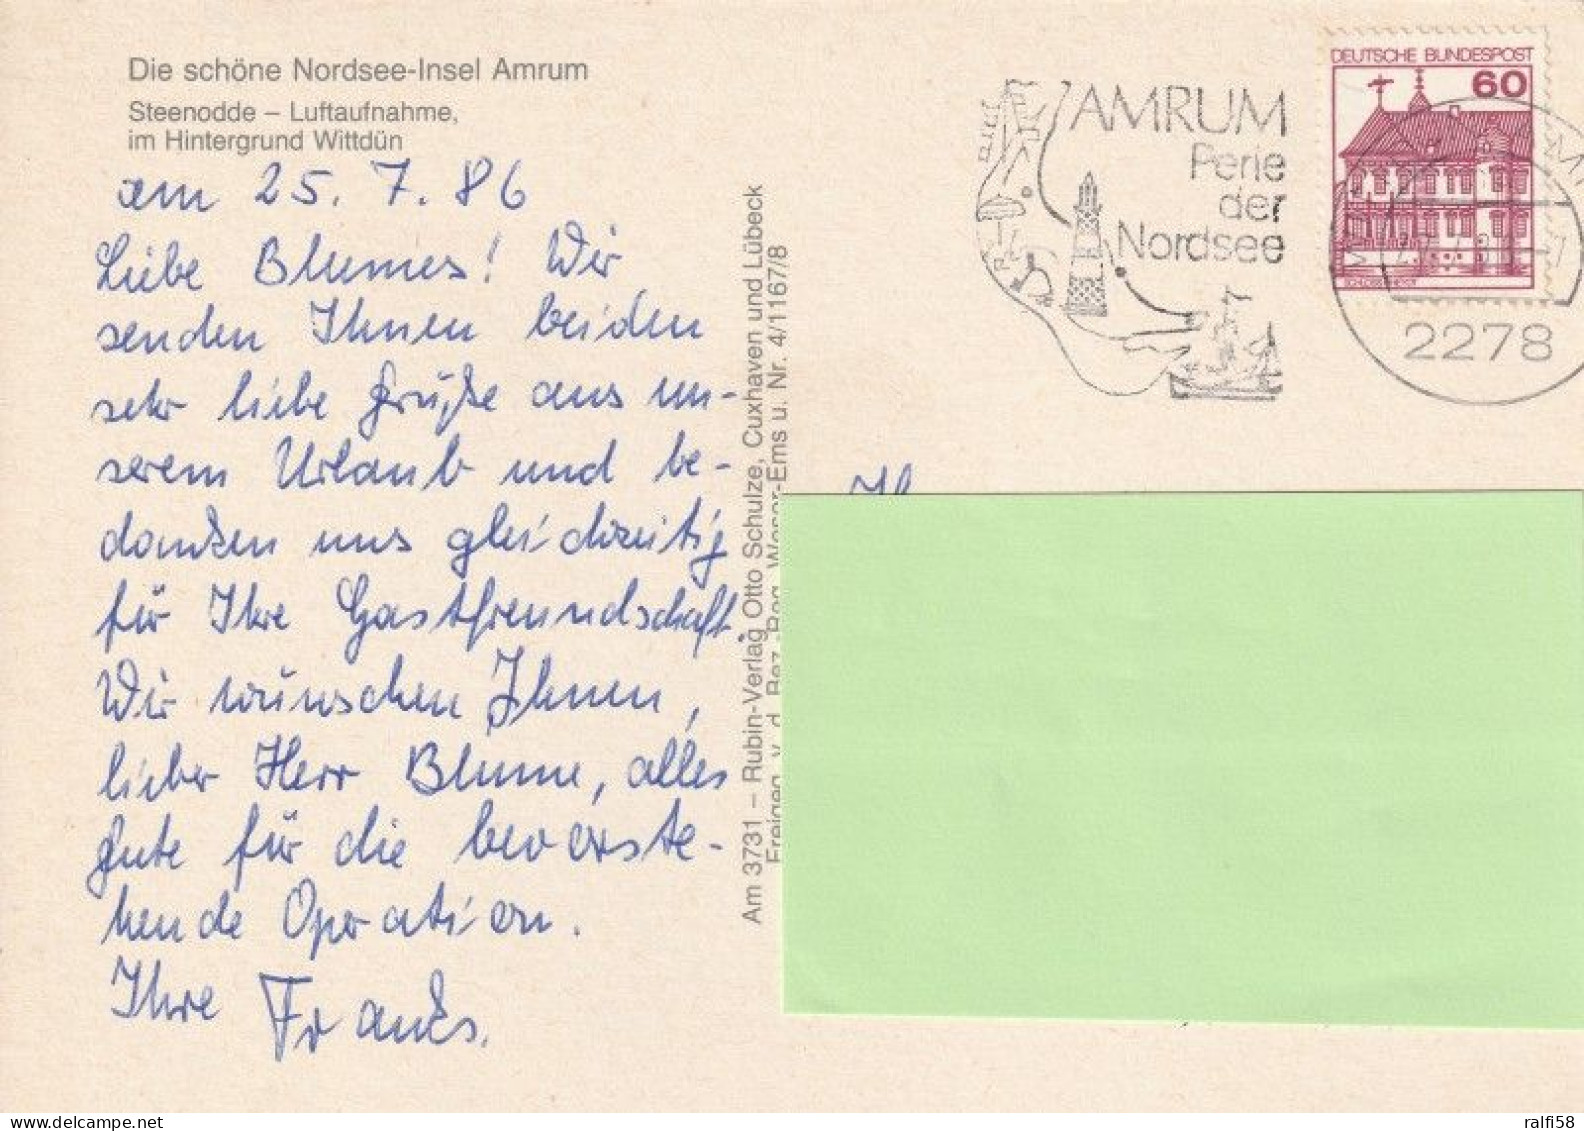 Die schöne Nordsee-Insel Amrum
Steenodde – Luftaufnahme,
im Hintergrund Wittdün
am 25. 7. 86
Liebe Blumes! Wir
senden Ihnen beiden
sehr liebe Grüße aus un-
serem Urlaub und be-
danken uns gleichzeitig
für Ihre Gastfreundschaft.
Wir wünschen Ihnen,
lieber Herr Blume, alles
gute für die bevorste-
hende Operation.
Ihre Franks.
Am 3731 – Rubin-Verlag Otto Schulze, Cuxhaven und Lübeck
Freigeg. v. d. Bez.-Reg. Weser-Ems u. Nr. 4/1167/8
AMRUM
Perle
der
Nordsee
DEUTSCHE BUNDESPOST
60
2278
delcampe.net
ralfi58